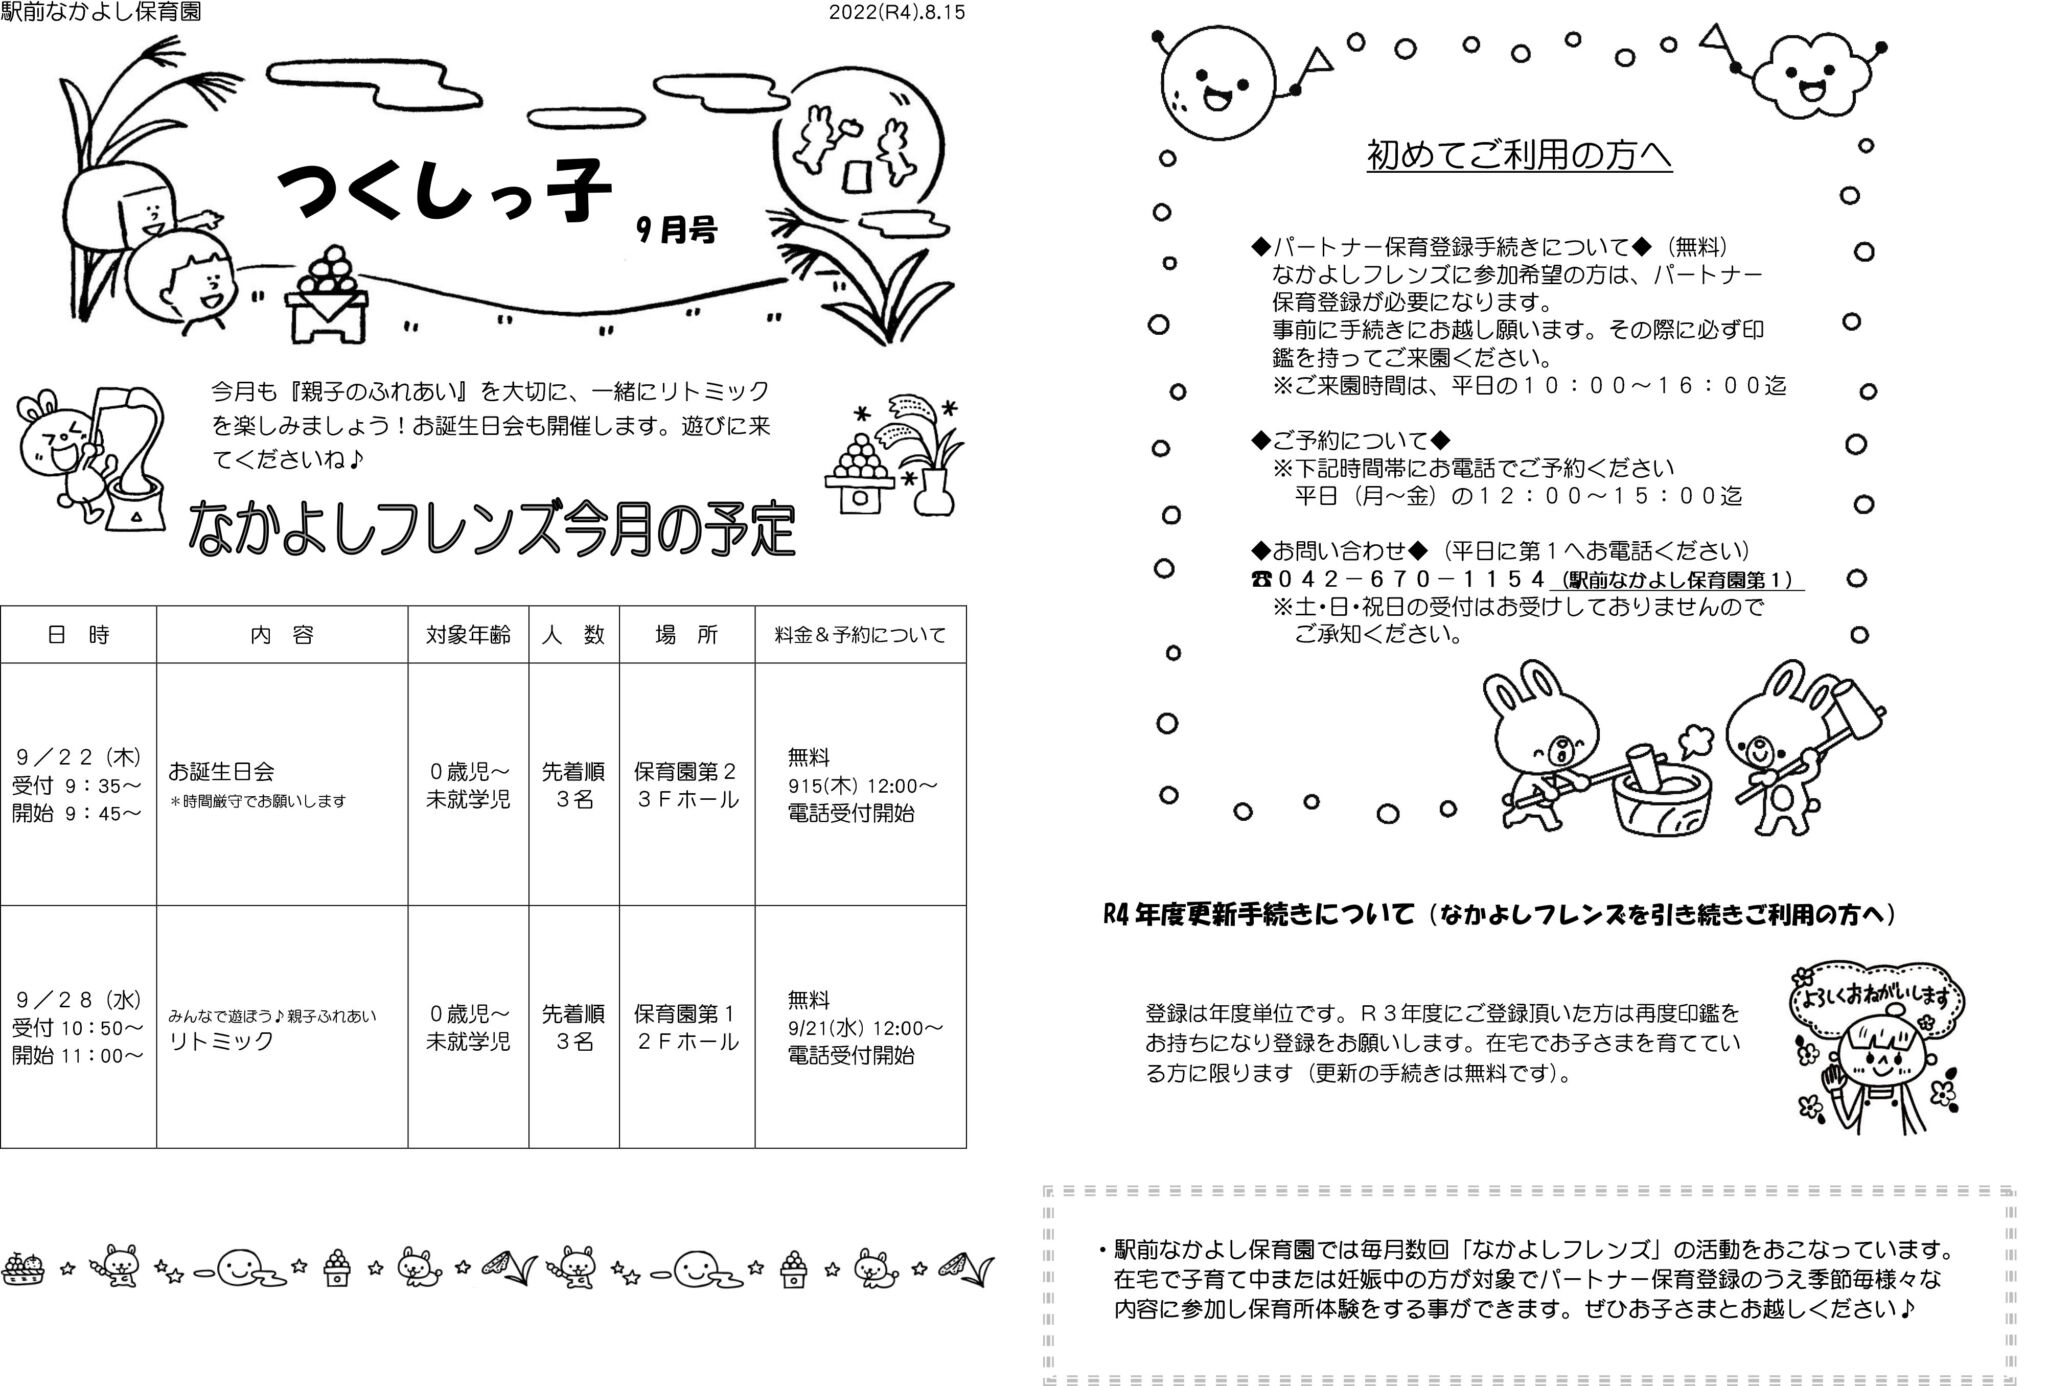 駅前なかよし保育園
2022(R4).8.15
つくしっ子
9月号
今月も『親子のふれあい』を大切に、一緒にリトミック
を楽しみましょう！お誕生日会も開催します。遊びに来
てくださいね♪
なかよしフレンズ今月の予定
日　時
内　容
対象年齢
人　数
場　所
料金＆予約について
９／２２（木）
受付 9：35～
開始 9：45～
お誕生日会
＊時間厳守でお願いします
０歳児～
未就学児
先着順
３名
保育園第２
３Ｆホール
無料
915(木) 12:00～
電話受付開始
９／２８（水）
受付 10：50～
開始 11：00～
みんなで遊ぼう♪親子ふれあい
リトミック
０歳児～
未就学児
先着順
３名
保育園第１
２Ｆホール
無料
9/21(水) 12:00～
電話受付開始
初めてご利用の方へ
◆パートナー保育登録手続きについて◆（無料）
なかよしフレンズに参加希望の方は、パートナー
保育登録が必要になります。
事前に手続きにお越し願います。その際に必ず印
鑑を持ってご来園ください。
※ご来園時間は、平日の１０：００～１６：００迄
◆ご予約について◆
※下記時間帯にお電話でご予約ください
平日（月～金）の１２：００～１５：００迄
◆お問い合わせ◆（平日に第１へお電話ください）
☎０４２－６７０－１１５４（駅前なかよし保育園第１）
※土・日・祝日の受付はお受けしておりませんので
ご承知ください。
R4 年度更新手続きについて（なかよしフレンズを引き続きご利用の方へ）
登録は年度単位です。Ｒ３年度にご登録頂いた方は再度印鑑を
お持ちになり登録をお願いします。在宅でお子さまを育ててい
る方に限ります（更新の手続きは無料です）。
よろしくおねがいします
・駅前なかよし保育園では毎月数回「なかよしフレンズ」の活動をおこなっています。
在宅で子育て中または妊娠中の方が対象でパートナー保育登録のうえ季節毎様々な
内容に参加し保育所体験をする事ができます。ぜひお子さまとお越しください♪